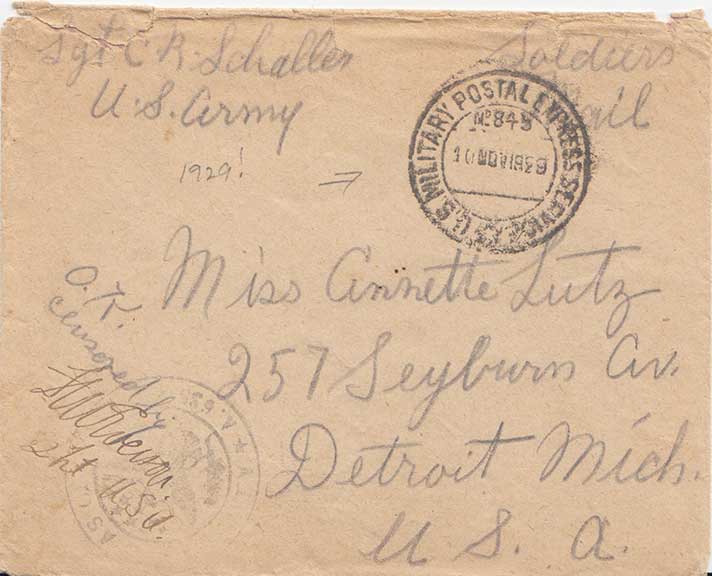 Sgt C R Schaller
U.S. Army
Soldiers
Mail
U.S. MILITARY POSTAL EXPRESS SERVICE
No 845
10 NOV 1929
1929!
Miss Annette Lutz
257 Seyburn Av.
Detroit Mich.
U. S. A.
O.K.
Censored by
2 Lt U.S.A.
A.S.